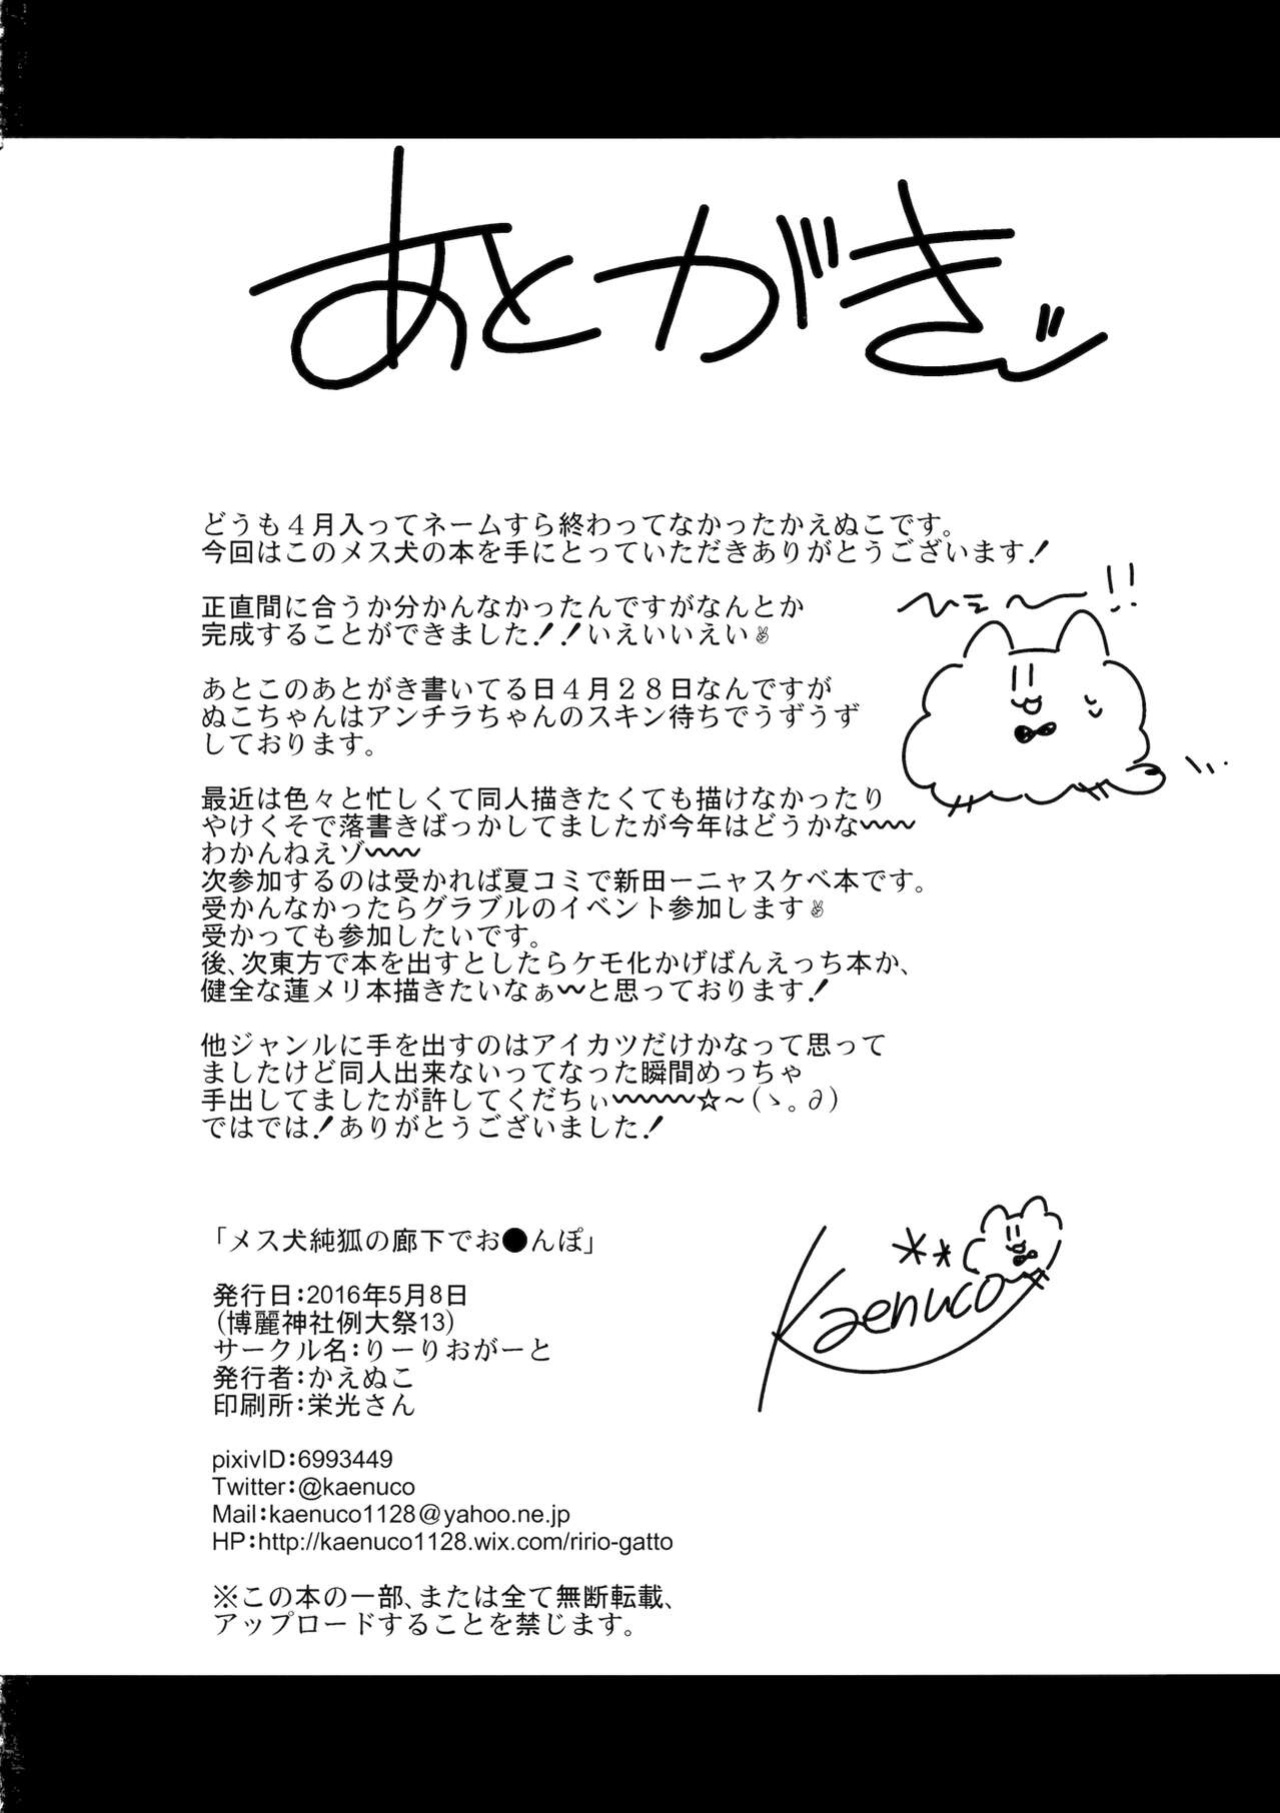 あとがきッ
どうも４月入ってネームすら終わってなかったかえぬこです。
今回はこのメス犬の本を手にとっていただきありがとうございます！
ひえ〜!!
正直間に合うか分かんなかったんですがなんとか
完成することができました！！いえいいえい✌
あとこのあとがき書いてる日４月２８日なんですが
ぬこちゃんはアンチラちゃんのスキン待ちでうずうず
しております。
最近は色々と忙しくて同人描きたくても描けなかったり
やけくそで落書きばっかしてましたが今年はどうかな〜〜
わかんねえゾ〜〜
次参加するのは受かれば夏コミで新田ーニャスケベ本です。
受かんなかったらグラブルのイベント参加します✌
受かっても参加したいです。
後、次東方で本を出すとしたらケモ化かげばんえっち本か、
健全な蓮メリ本描きたいなぁ〜と思っております！
他ジャンルに手を出すのはアイカツだけかなって思って
ましたけど同人出来ないってなった瞬間めっちゃ
手出してましたが許してくだちぃ〜〜〜〜☆～(ゝ。∂)
ではでは！ありがとうございました！
「メス犬純狐の廊下でお●んぽ」
Kaenuco
発行日：2016年5月8日
（博麗神社例大祭13）
サークル名：りーりおがーと
発行者：かえぬこ
印刷所：栄光さん
pixivID：6993449
Twitter：@kaenuco
Mail：kaenuco1128@yahoo.ne.jp
HP：http://kaenuco1128.wix.com/ririo-gatto
※この本の一部、または全て無断転載、
アップロードすることを禁じます。